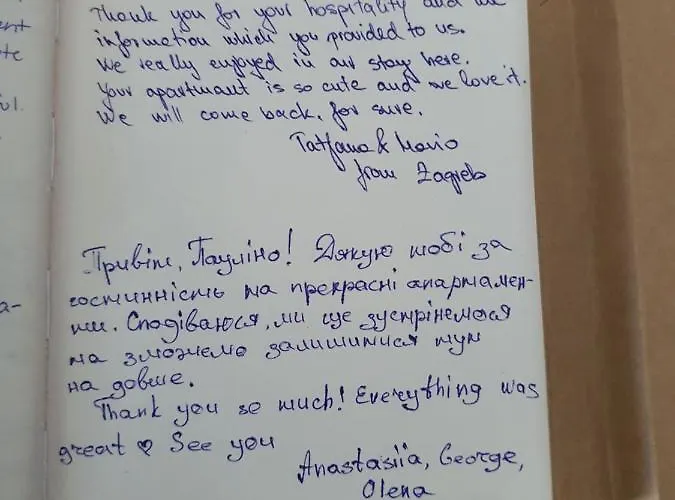 ent
te
ful.
a-
Thank you for your hospitality and the
information which you provided to us.
We really enjoyed in our stay here.
Your apartmant is so cute and we love it.
We will come back, for sure.
Tatjana & Mario
from Zagreb
Привіт, Пауліно! Дякую тобі за
гостинність та прекрасні апартамен-
ти. Сподіваюся, ми ще зустрінемося
та зможемо залишитися тут
на довше.
Thank you so much! Everything was
great ♡ See you
Anastasiia, George,
Olena